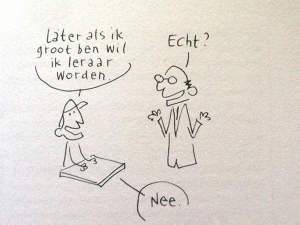 Later als ik
groot ben wil
ik leraar
worden.
Echt?
Nee.